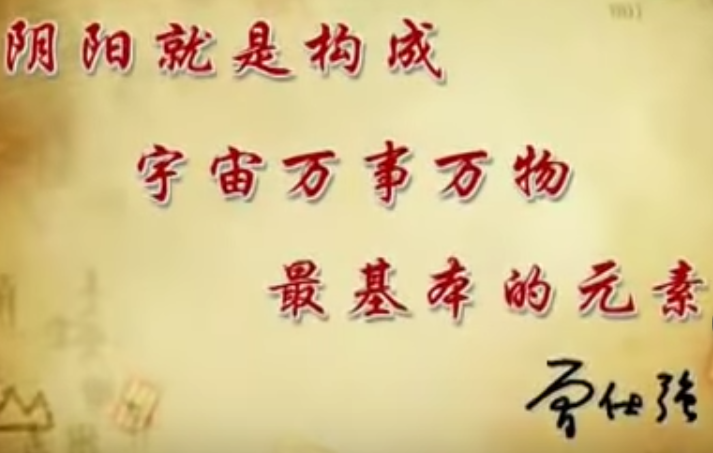 阴阳就是构成
宇宙万事万物
最基本的元素
曾仕强